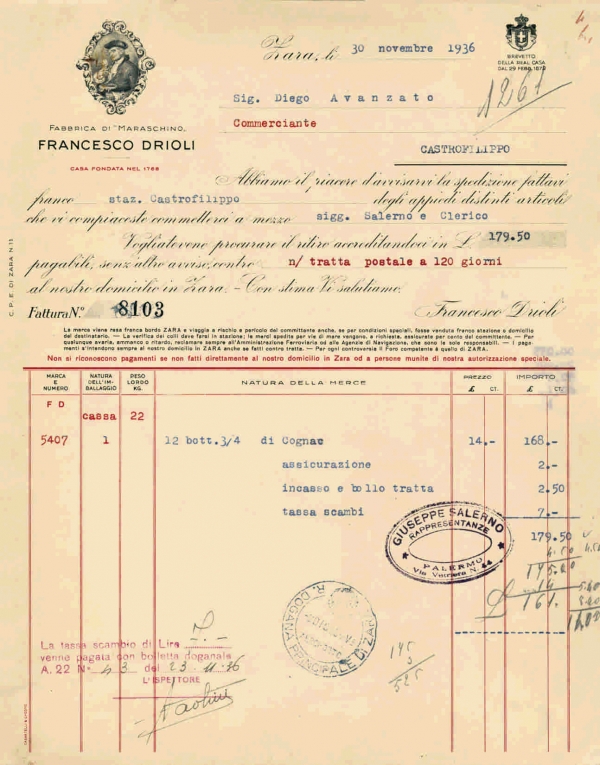 Zara, li 30 novembre 1936
BREVETTO
DELLA REAL CASA
1261
Sig. Diego Avanzato
Commerciante
CASTROFILIPPO
FABBRICA DI "MARASCHINO"
FRANCESCO DRIOLI
CASA FONDATA NEL 1768
Abbiamo il piacere d'avvisarvi la spedizione fattavi
franco staz. Castrofilippo degli appiedi distinti articoli
che vi compiaceste commetterci a mezzo sigg. Salerno e Clerico
Vogliatevene procurare il ritiro accreditandoci in £ 179.50
pagabili, senz'altro avviso, contro n/ tratta postale a 120 giorni
al nostro domicilio in Zara. - Con stima Vi salutiamo.
Fattura N.º 8103 Francesco Drioli
C. P. E. DI ZARA N. 13
La merce viene resa franca bordo ZARA e viaggia a rischio e pericolo del committente anche, se per condizioni speciali, fosse venduta franco stazione o domicilio
del destinatario. — La verifica dei colli deve farsi in stazione; le merci spedite per via di mare vengono, a richiesta, assicurate per conto del committente. — Per
qualunque avaria, ammanco o ritardo, reclamare sempre all'Amministrazione Ferroviaria od alle Agenzie di Navigazione, che sono le sole responsabili. — I paga-
menti s'intendono sempre al nostro domicilio in ZARA anche se fatti contro tratta. — Per ogni controversia il Foro competente è quello di ZARA.
Non si riconoscono pagamenti se non fatti direttamente al nostro domicilio in Zara od a persone munite di nostra autorizzazione speciale.
MARCA E NUMERO NATURA DELL'IM- BALLAGGIO PESO LORDO KG. NATURA DELLA MERCE PREZZO £ CT. IMPORTO £ CT.
F D
cassa 22
5407 1 12 bott.3/4 di Cognac 14.- 168.-
assicurazione 2.-
incasso e bollo tratta 2.50
tassa scambi 7.-
179.50
GIUSEPPE SALERNO
RAPPRESENTANZE
PALERMO
161.
R. DOGANA PRINCIPALE DI ZARA
175
3
525
La tassa scambio di Lire 7.-
venne pagata con bolletta doganale
A. 22 Nº 43 del 23-11-36
L'ISPETTORE